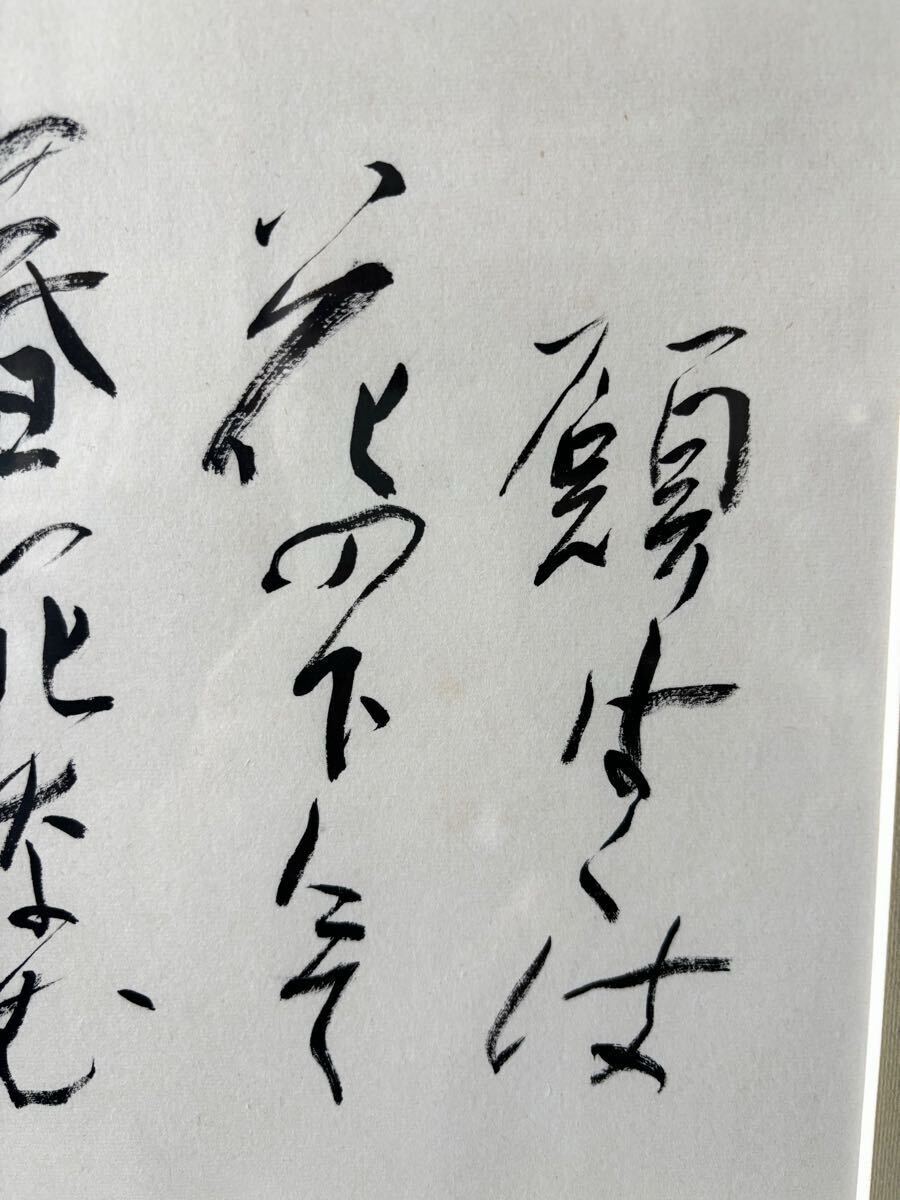 願はくは
花の下にて
春死なむ